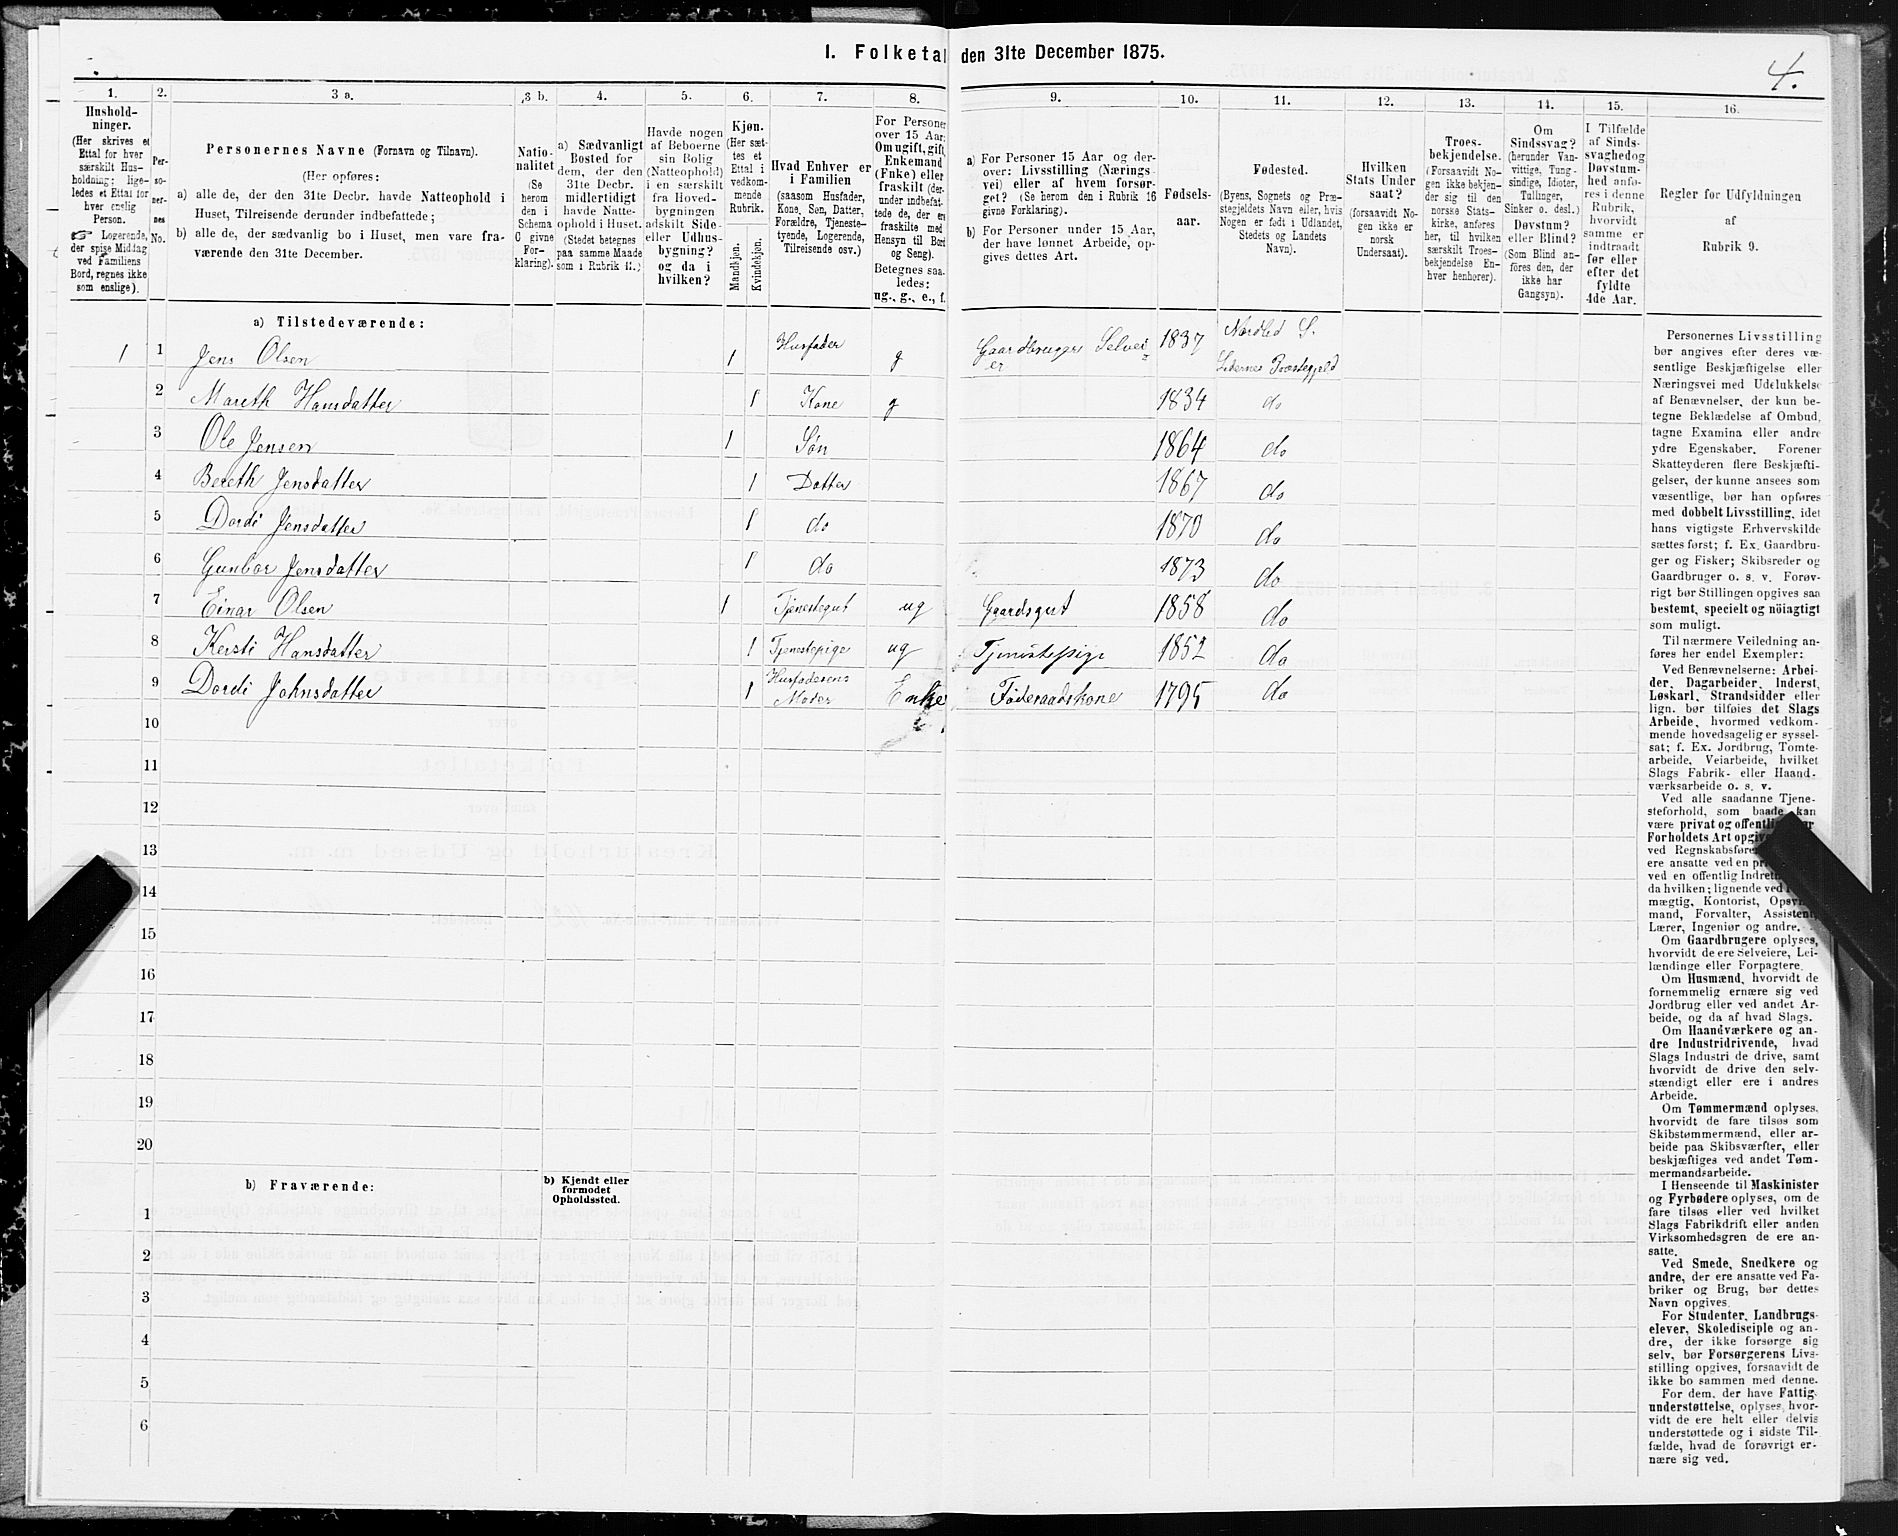 I. Folketal den 31te December 1875.
4.
1.
2.
3 a.
3 b.
4.
5.
6.
7.
8.
9.
10.
11.
12.
13.
14.
15.
16.
Hushold-
ninger.
(Her skrives et
Ettal for hver
særskilt Hus-
holdning; lige-
ledes et Ettal for
hver enslig
Person.
☞ Logerende,
der spise Middag
ved Familiens
Bord, regnes ikke
som enslige).
Per-
so-
ner-
nes
No.
Personernes Navne (Fornavn og Tilnavn).
(Her opføres:
a) alle de, der den 31te Decbr. havde Natteophold i
Huset, Tilreisende derunder indbefattede;
b) alle de, der sædvanlig bo i Huset, men vare fra-
værende den 31te December.
Natio-
nalitet
(Se
herom
den i
Schema
C givne
For-
klaring).
a) Sædvanligt
Bosted for
dem, der den
31te Decbr.
midlertidigt
havde Natte-
ophold i Huset.
(Stedet betegnes
paa samme Maade
som i Rubrik 11.)
Havde nogen
af Beboerne
sin Bolig
(Natteophold)
i en særskilt
fra Hoved-
bygningen
adskilt Side-
eller Udhus-
bygning?
og da i
hvilken?
Kjøn.
(Her sæt-
tes et
Ettal i
vedkom-
mende
Rubrik.
Mandkjøn.
Kvindekjøn.
Hvad Enhver er
i Familien
(saasom Husfader,
Kone, Søn, Datter,
Forældre, Tjeneste-
tyende, Logerende,
Tilreisende osv.)
For Personer
over 15 Aar:
Om ugift, gift,
Enkemand
(Enke) eller
fraskilt (der-
under indbefat-
tede de, der ere
fraskilte med
Hensyn til Bord
og Seng).
Betegnes saa-
ledes:
ug., g., e., f.
a) For Personer 15 Aar og der-
over: Livsstilling (Nærings-
vei) eller af hvem forsør-
get? (Se herom den i Rubrik 16
givne Forklaring).
b) For Personer under 15 Aar,
der have lønnet Arbeide, op-
gives dettes Art.
Fødsels-
aar.
Fødested.
(Byens, Sognets og Præ-
stegjeldets Navn eller, hvis
Nogen er født i Udlandet,
Stedets og Landets
Navn).
Hvilken
Stats Under
saat?
(forsaavidt No-
gen ikke er
norsk
Undersaat).
Troes-
bekjendelse.
(Forsaavidt No-
gen ikke bekjen-
der sig til den
norske Stats-
kirke, anføres
her, til hvilken
særskilt Troes-
bekjendelse En-
hver henhører).
Om
Sindssvag?
(herunder Van-
vittige, Tung-
sindige, Idioter,
Tullinger,
Sinker o. desl.)
Døvstum?
eller Blind?
(Som Blind an-
føres den, der
ikke har
Gangsyn).
I Tilfælde
af Sinds-
svaghedog
Døvstum-
hed anfø-
res i denne
Rubrik,
hvorvidt
samme er
indtraadt
før eller
efter det
fyldte
4de Aar.
Regler for Udfyldningen
af
Rubrik 9.
a) Tilstedeværende:
1 1 Jens Olsen 1 Husfader g Gaardbruger Selvei-er 1837 Nordlid S. Lidernes Præstegjeld
2 Mareth Hansdatter 1 Kone g 1834 do
3 Ole Jensen 1 Søn 1864 do
4 Bereth Jensdatter 1 Datter 1867 do
5 Dordi Jensdatter 1 do 1870 do
6 Gunbor Jensdatter 1 do 1873 do
7 Einar Olsen 1 Tjenestegut ug Gaardsgut 1858 do
8 Kersti Hansdatter 1 Tjenestepige ug Tjenistepige 1852 do
9 Dordi Johnsdatter 1 Husfaderens Moder Enke Føderaadskone 1795 do
10
11
12
13
14
15
16
17
18
19
20
b) Fraværende:
b) Kjendt eller
formodet
Opholdssted.
1
2
3
4
5
6
Personernes Livsstilling
bør angives efter deres væ-
sentlige Beskjæftigelse eller
Næringsvei med Udelukkelse
af Benævnelser, der kun be-
tegne Beklædelse af Ombud,
tagne Examina eller andre
ydre Egenskaber. Forener
Skatteyderen flere Beskjæfti-
gelser, der kunne ansees som
væsentlige, bør han opføres
med dobbelt Livsstilling, idet
hans vigtigste Erhvervskilde
sættes først; f. Ex. Gaardbru-
ger og Fisker; Skibsreder og
Gaardbruger o. s. v. Forøv-
rigt bør Stillingen opgives saa
bestemt, specielt og nöiagtigt
som muligt.
Til nærmere Veiledning an-
føres her endel Exempler:
Ved Benævnelserne: Arbei-
der, Dagarbeider, Inderst,
Løskarl, Strandsidder eller
lign. bør tilføies det Slags
Arbeide, hvormed vedkom-
mende hovedsagelig er syssel-
sat; f. Ex. Jordbrug, Tomte-
arbeide, Veiarbeide, hvilket
Slags Fabrik- eller Haand-
værksarbeide o. s. v.
Ved alle saadanne Tjene-
steforhold, som baade kan
være privat og offentlig
Forholdets Art opgiv
ved Regnskabsføre
ere ansatte ved en pri
ved en offentlig Indret
da hvilken; lignende ved
mægtig, Kontorist, Opsyns-
mand, Forvalter, Assistent,
Lærer, Ingeniør og andre.
Om Gaardbrugere oplyses,
hvorvidt de ere Selveiere, Lei-
lændinge eller Forpagtere.
Om Husmænd, hvorvidt de
fornemmelig ernære sig ved
Jordbrug eller ved andet Ar-
beide, og da af hvad Slags.
Om Haandværkere og an-
dre Industridrivende, hvad
Slags Industri de drive, samt
hvorvidt de drive den selv-
stændigt eller ere i andres
Arbeide.
Om Tømmermænd oplyses,
hvorvidt de fare tilsøs som
Skibstømmermænd, eller ar-
beide paa Skibsværfter, eller
beskjæftiges ved andet Tøm-
mermandsarbeide.
I Henseende til Maskinister
og Fyrbødere oplyses, om de
fare tilsøs eller ved hvilket
Slags Fabrikdrift eller anden
Virksomhedsgren de ere an-
satte.
Ved Smede, Snedkere og
andre, der ere ansatte ved Fa-
briker og Brug, bør dettes
Navn opgives.
For Studenter, Landbrugs-
elever, Skoledisciple og an-
dre, der ikke forsørge sig
selv, bør Forsørgerens Livs-
stilling opgives, forsaavidt de
ikke bo sammen med denne.
For dem, der have Fattig-
understøttelse, oplyses, hvor-
vidt de ere helt eller delvis
understøttede og i sidste Til-
fælde, hvad de forøvrigt er-
nære sig ved.